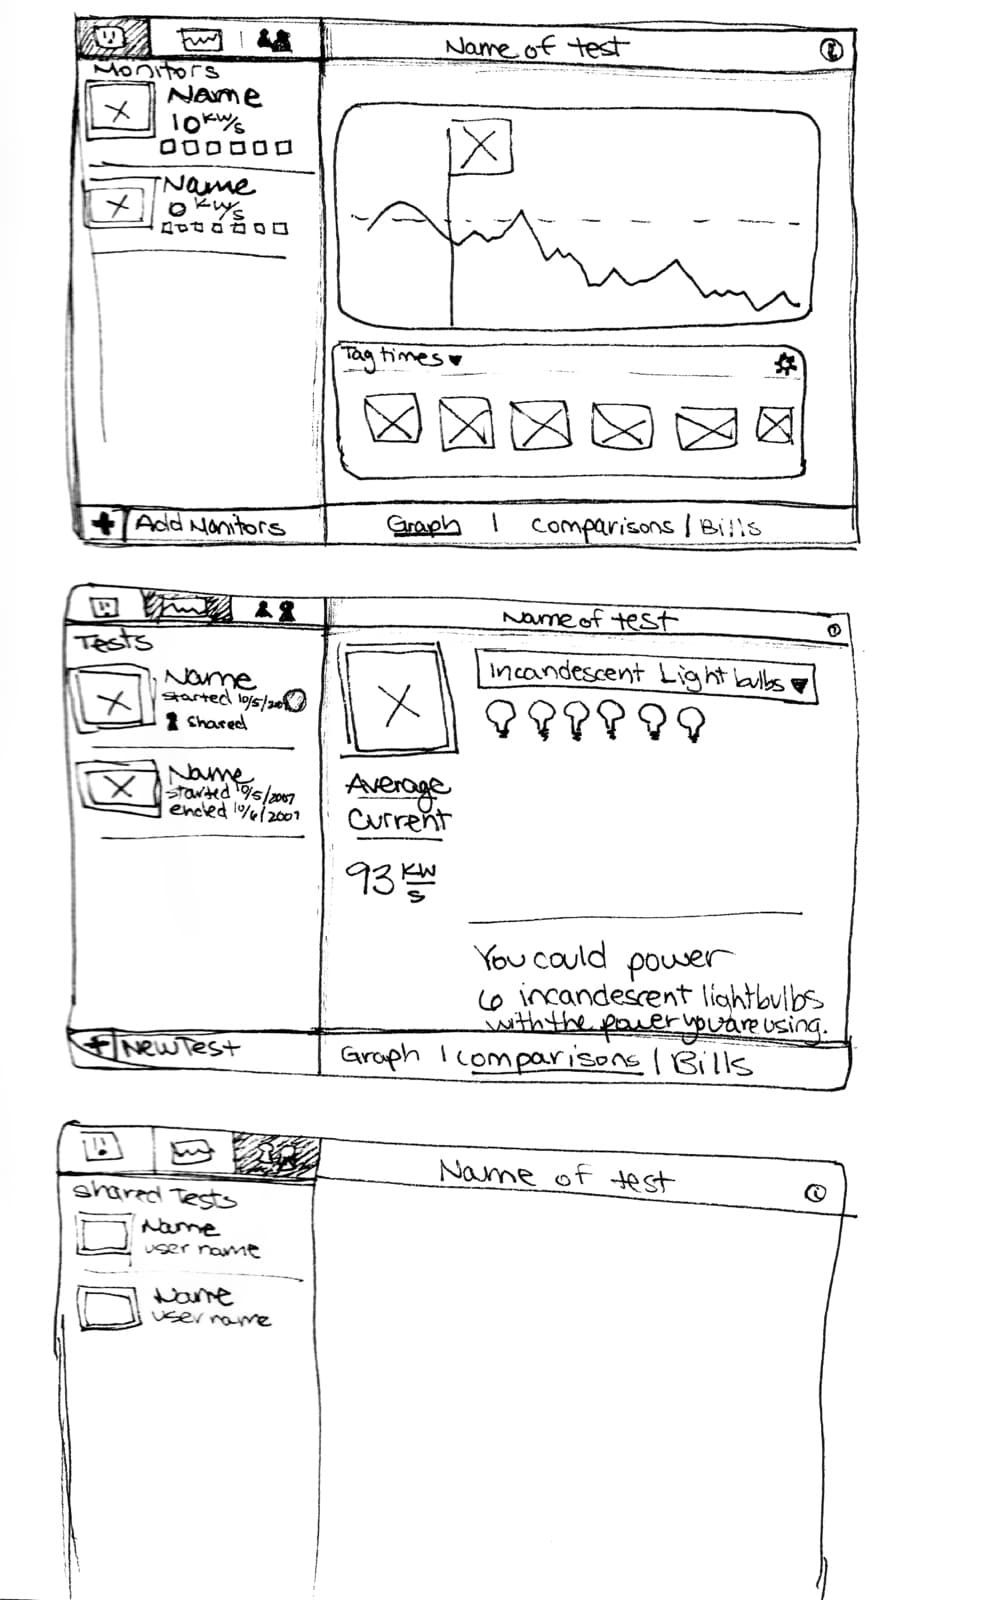 Name of test
Monitors
Name
10 KW/s
Name
0 KW/s
Tag times
Add Monitors
Graph | Comparisons / Bills
Name of test
Tests
Name
started 10/5/20
Shared
Name
started 10/5/2007
ended 10/6/2007
Incandescent Light bulbs
Average
Current
93 KW/s
You could power
6 incandescent lightbulbs
with the power you are using.
+ New Test
Graph | Comparisons / Bills
Name of test
Shared Tests
Name
user name
Name
user name